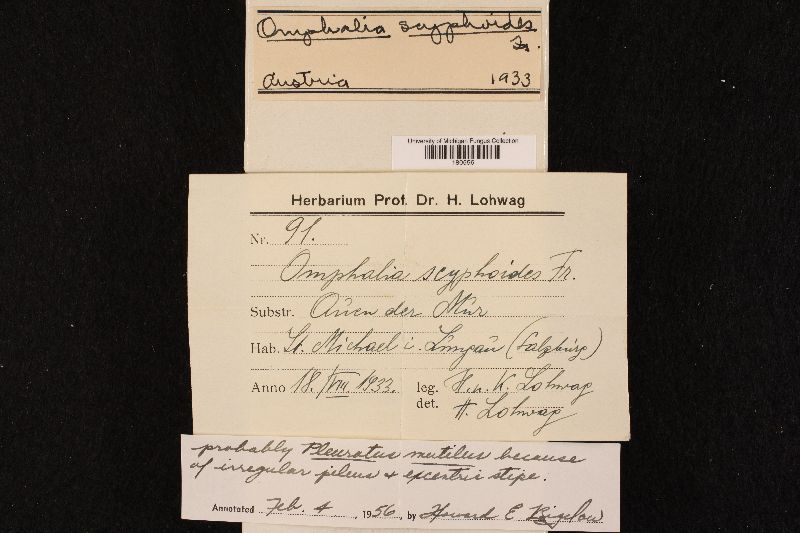 Omphalia scyphoides
Fr.
Austria 1933
University of Michigan Fungus Collection
Herbarium Prof. Dr. H. Lohwag
Nr. 91.
Omphalia scyphoides Fr.
Substr. Auen der Mur
Hab. St. Michael i. Lungau (Salzburg)
Anno 18./VIII 1933. leg. H. u. K. Lohwag
det. H. Lohwag
probably Pleurotus mutilus because
of irregular pileus & excentric stipe.
Annotated Feb. 4, 1956, by Howard E Bigelow